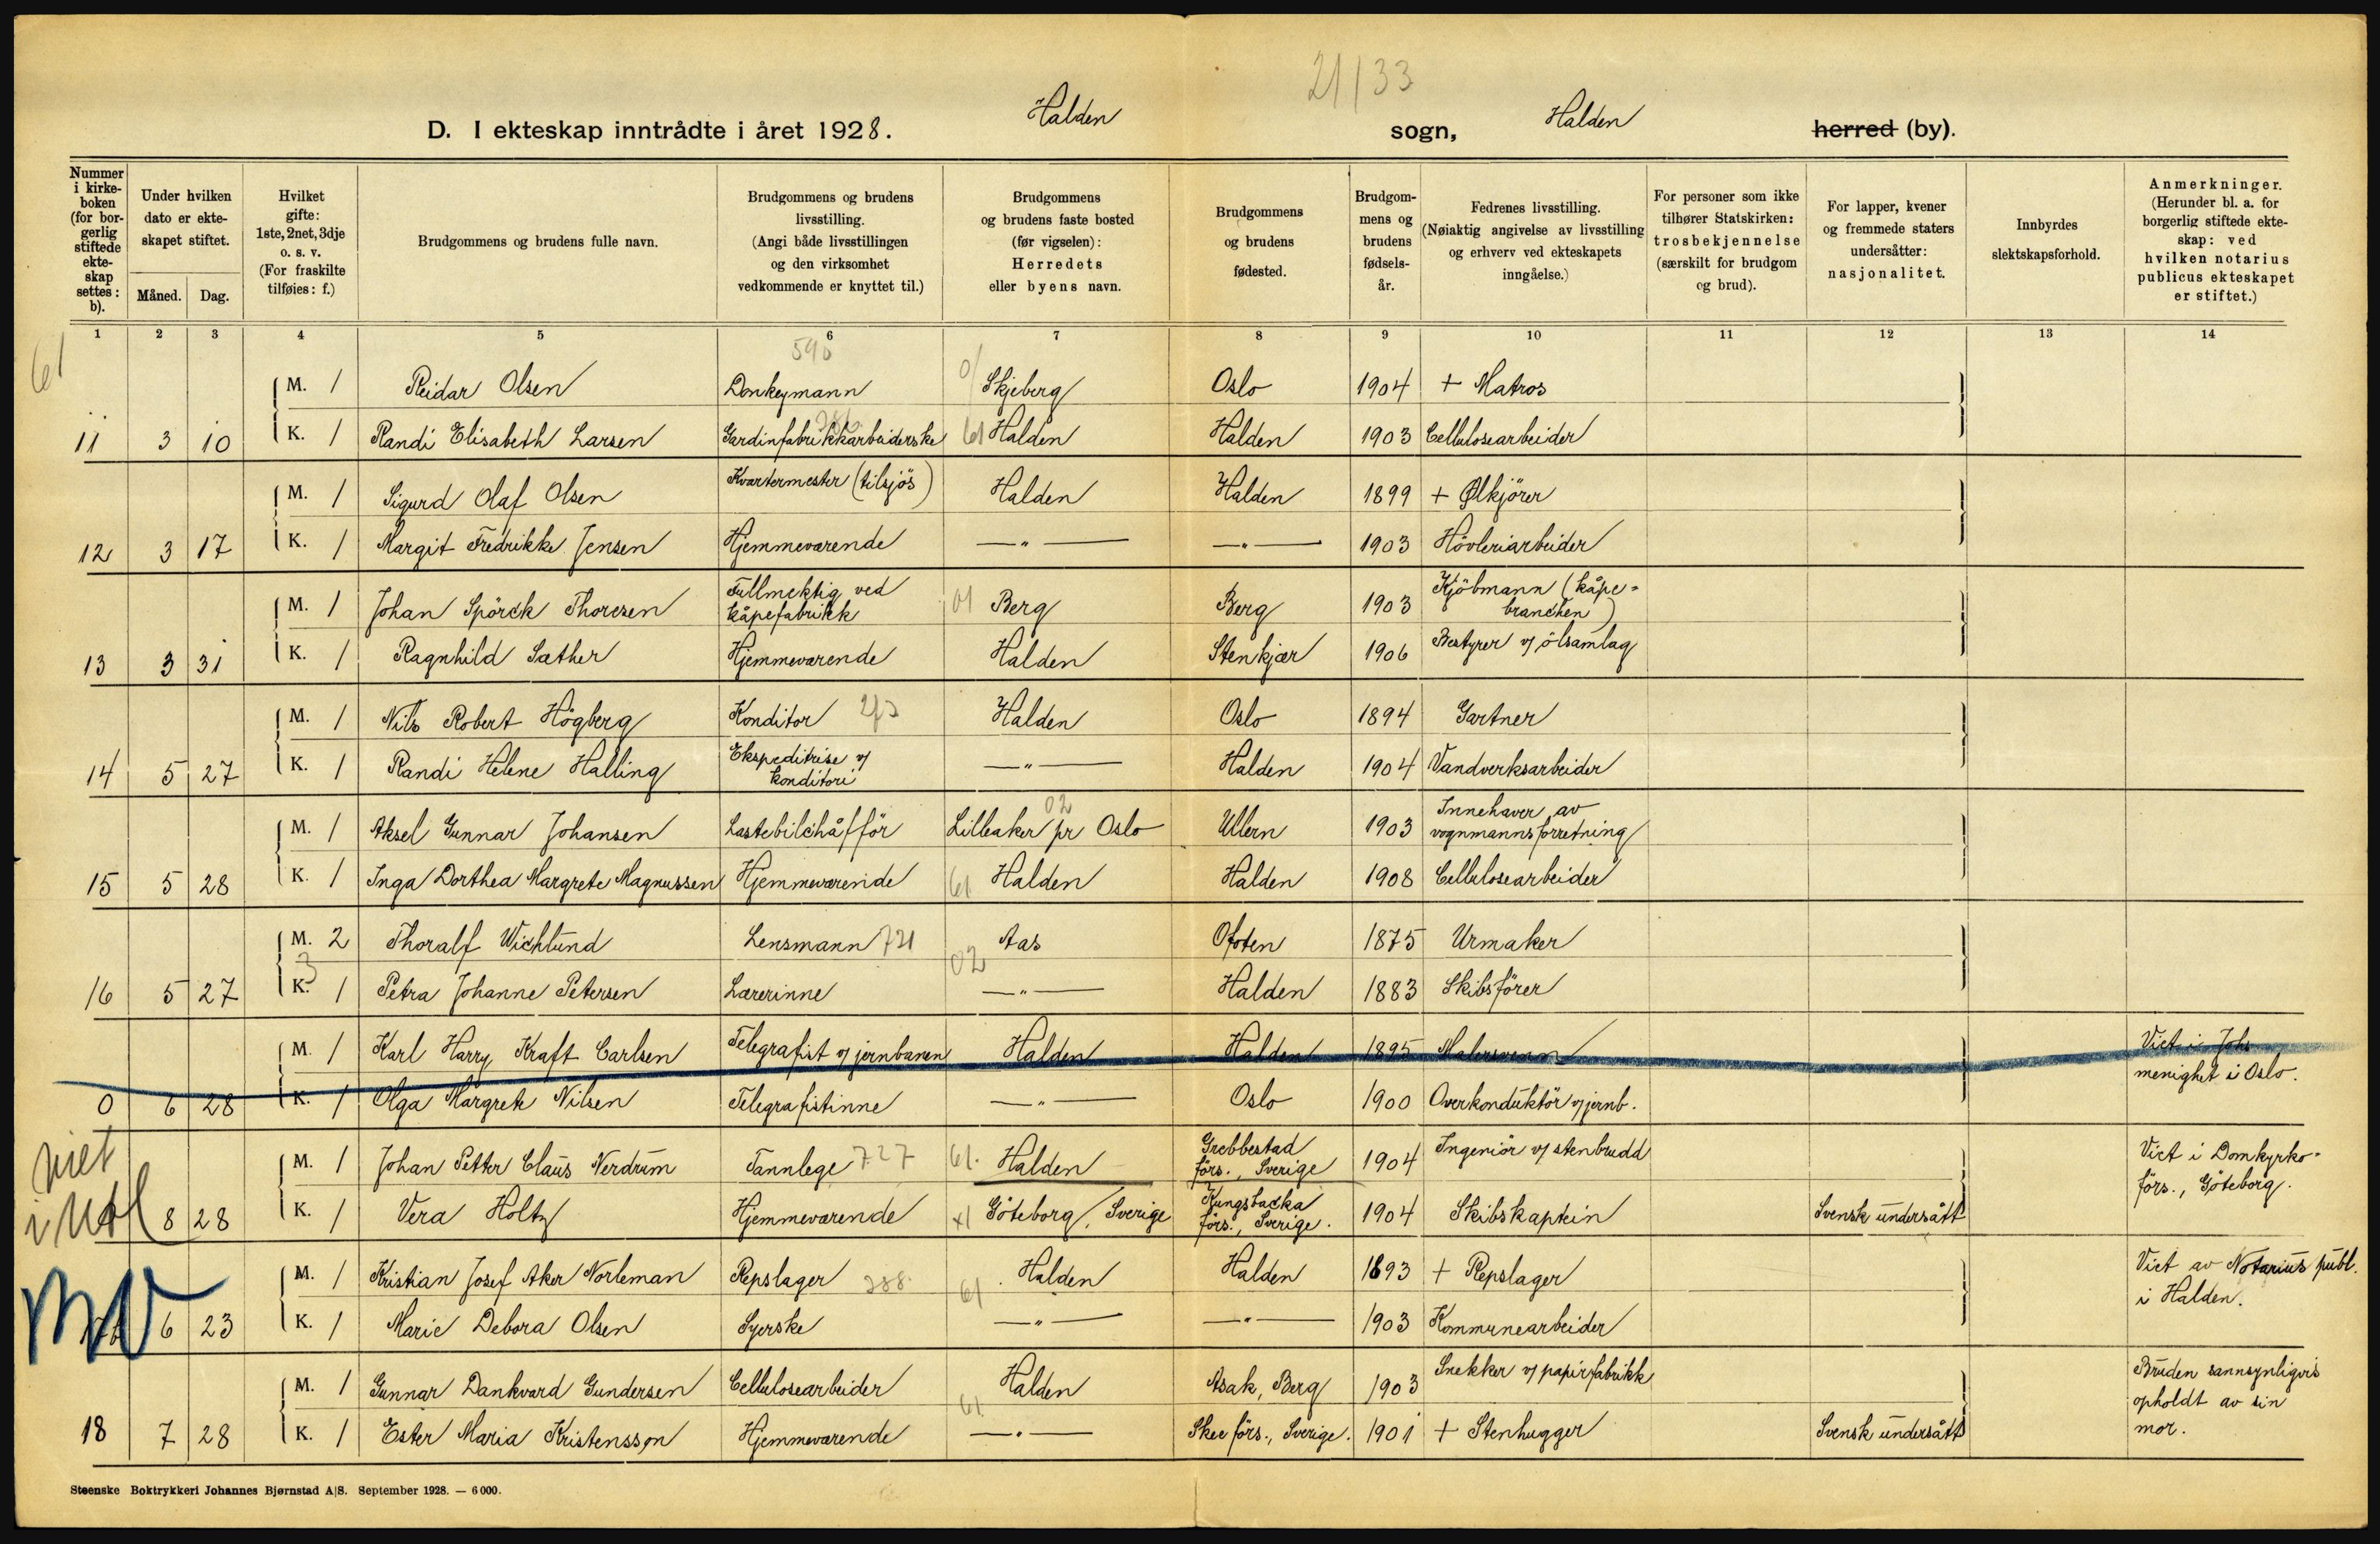 21/33
D. I ekteskap inntrådte i året 1928. Halden sogn, Halden herred (by).
Nummer i kirke-boken (for bor-gerlig stiftede ekte-skap settes: b).
Under hvilken dato er ekte-skapet stiftet.
Måned. Dag.
Hvilket gifte: 1ste, 2net, 3dje o. s. v. (For fraskilte tilføies: f.)
Brudgommens og brudens fulle navn.
Brudgommens og brudens livsstilling. (Angi både livsstillingen og den virksomhet vedkommende er knyttet til.)
Brudgommens og brudens faste bosted (før vigselen): Herredets eller byens navn.
Brudgommens og brudens fødested.
Brudgom-mens og brudens fødsels-år.
Fedrenes livsstilling. (Nøiaktig angivelse av livsstilling og erhverv ved ekteskapets inngåelse.)
For personer som ikke tilhører Statskirken: trosbekjennelse (særskilt for brudgom og brud).
For lapper, kvener og fremmede staters undersåtter: nasjonalitet.
Innbyrdes slektskapsforhold.
Anmerkninger. (Herunder bl. a. for borgerlig stiftede ekte-skap: ved hvilken notarius publicus ekteskapet er stiftet.)
1 2 3 4 5 6 7 8 9 10 11 12 13 14
61
M. 1 Reidar Olsen Donkeymann Skjeberg Oslo 1904 + Matros
11 3 10 K. 1 Randi Elisabeth Larsen Gardinfabrikkarbeiderske 61 Halden Halden 1903 Cellulosearbeider
M. 1 Sigurd Olaf Olsen Kvartermester (tilsjös) Halden Halden 1899 + Ølkjörer
12 3 17 K. 1 Margit Fredrikke Jensen Hjemmeværende —"— —"— 1903 Hövleriarbeider
M. 1 Johan Spörck Thoresen Fullmektig ved kåpefabrikk 01 Berg Berg 1903 Kjöbmann (kåpe=branchen)
13 3 31 K. 1 Ragnhild Sæther Hjemmeværende Halden Stenkjær 1906 Bestyrer v/ ölsamlag
M. 1 Nils Robert Högberg Konditor Halden Oslo 1894 Gartner
14 5 27 K. 1 Randi Helene Halling Ekspeditrise v/ konditori —"— Halden 1904 Vandverksarbeider
M. 1 Aksel Gunnar Johansen Lastebilchåfför Lilleaker pr Oslo 02 Ullern 1903 Innehaver av vognmannsforretning
15 5 28 K. 1 Inga Dorthea Margrete Magnussen Hjemmeværende 61 Halden Halden 1908 Cellulosearbeider
M. 2 Thoralf Wichlund Lensmann 721 Aas Ofoten 1875 Urmaker
16 5 27 3 K. 1 Petra Johanne Petersen Lærerinne 02 —"— Halden 1883 Skibsförer
M. 1 Karl Harry Kraft Carlsen Telegrafist v/ jernbanen Halden Halden 1895 Malersvenn Viet i Johs menighet i Oslo.
0 6 28 K. 1 Olga Margrete Nilsen Telegrafistinne —"— Oslo 1900 Overkonduktör v/ jernb.
viet i utl
M. 1 Johan Petter Claus Nerdrum Tannlege 727 61. Halden Grebbestad förs., Sverige 1904 Ingeniör v/ stenbrudd Viet i Domkyrko=förs., Göteborg.
8 28 K. 1 Vera Holtz Hjemmeværende Göteborg, Sverige Kungsbacka förs., Sverige. 1904 Skibskaptein Svensk undersått
M. 1 Kristian Josef Aker Norleman Repslager 288. 61 Halden Halden 1893 + Repslager Viet av Notarius publ. i Halden.
6 23 K. 1 Marie Debora Olsen Syerske —"— —"— 1903 Kommunearbeider
M. 1 Gunnar Dankvard Gundersen Cellulosearbeider Halden Asak, Berg 1903 Snekker v/ papirfabrikk Bruden sannsynligvis opholdt av sin mor.
18 7 28 K. 1 Ester Maria Kristensson Hjemmeværende 61 —"— Skee förs., Sverige. 1901 + Stenhugger Svensk undersått
Steenske Boktrykkeri Johannes Bjørnstad A|S. September 1928. — 6000.